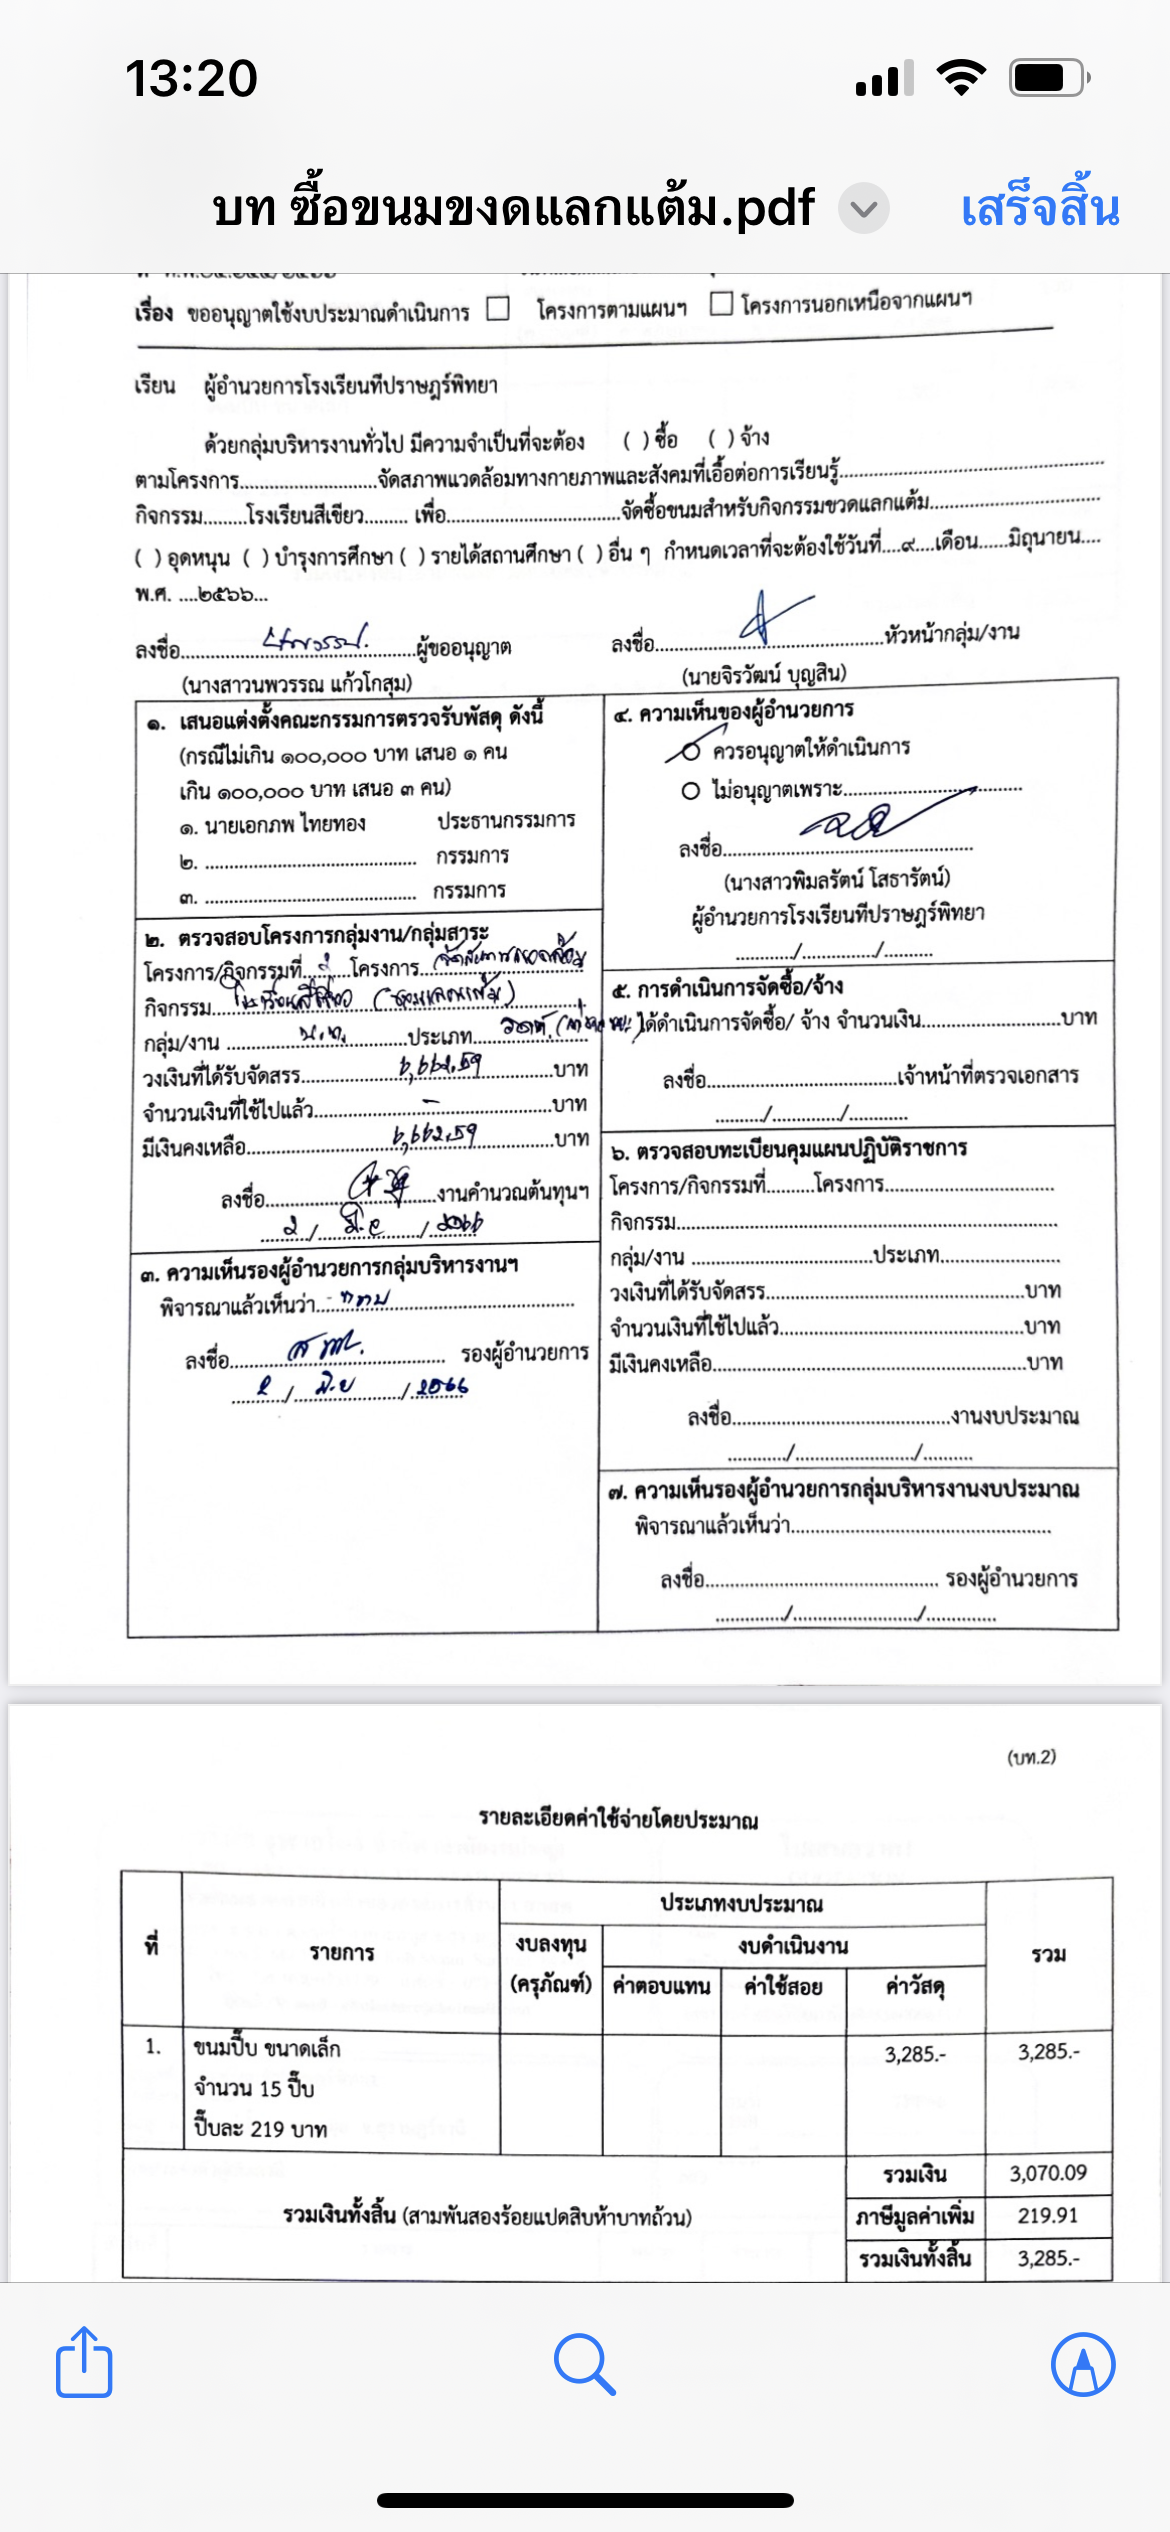 13:20
บท ซื้อขนมขงดแลกแต้ม.pdf
เสร็จสิ้น
เรื่อง ขออนุญาตใช้งบประมาณดำเนินการ ☐ โครงการตามแผนฯ ☐ โครงการนอกเหนือจากแผนฯ
เรียน ผู้อำนวยการโรงเรียนทีปราษฎร์พิทยา
ด้วยกลุ่มบริหารงานทั่วไป มีความจำเป็นที่จะต้อง ( ) ซื้อ ( ) จ้าง
ตามโครงการ...........................จัดสภาพแวดล้อมทางกายภาพและสังคมที่เอื้อต่อการเรียนรู้...........................
กิจกรรม.........โรงเรียนสีเขียว......... เพื่อ...................................จัดซื้อขนมสำหรับกิจกรรมขวดแลกแต้ม...................................
( ) อุดหนุน ( ) บำรุงการศึกษา ( ) รายได้สถานศึกษา ( ) อื่น ๆ กำหนดเวลาที่จะต้องใช้วันที่....๙....เดือน......มิถุนายน....
พ.ศ. ....๒๕๖๖...
ลงชื่อ...................................ผู้ขออนุญาต ลงชื่อ...................................หัวหน้ากลุ่ม/งาน
(นางสาวนพวรรณ แก้วโกสุม) (นายจิรวัฒน์ บุญสิน)
๑. เสนอแต่งตั้งคณะกรรมการตรวจรับพัสดุ ดังนี้
(กรณีไม่เกิน ๑๐๐,๐๐๐ บาท เสนอ ๑ คน
เกิน ๑๐๐,๐๐๐ บาท เสนอ ๓ คน)
๑. นายเอกภพ ไทยทอง ประธานกรรมการ
๒. ................................... กรรมการ
๓. ................................... กรรมการ
๒. ตรวจสอบโครงการกลุ่มงาน/กลุ่มสาระ
โครงการ/กิจกรรมที่.........โครงการ...........................
กิจกรรม...โรงเรียนสีเขียว (ขวดแลกแต้ม)
กลุ่ม/งาน ...บ.ท. ...ประเภท...........................
วงเงินที่ได้รับจัดสรร...๖,๖๖๒.๕๙...บาท
จำนวนเงินที่ใช้ไปแล้ว...-...บาท
มีเงินคงเหลือ...๖,๖๖๒.๕๙...บาท
ลงชื่อ...........................งานคำนวณต้นทุนฯ
๒ / มิ.ย / ๒๕๖๖
๓. ความเห็นรองผู้อำนวยการกลุ่มบริหารงานฯ
พิจารณาแล้วเห็นว่า...........................
ลงชื่อ........................... รองผู้อำนวยการ
๒ / มิ.ย / ๒๕๖๖
๔. ความเห็นของผู้อำนวยการ
ควรอนุญาตให้ดำเนินการ
ไม่อนุญาตเพราะ...........................
ลงชื่อ...........................
(นางสาวพิมลรัตน์ โสธารัตน์)
ผู้อำนวยการโรงเรียนทีปราษฎร์พิทยา
........../............/.........
๕. การดำเนินการจัดซื้อ/จ้าง
ได้ดำเนินการจัดซื้อ/ จ้าง จำนวนเงิน...........................บาท
ลงชื่อ...................................เจ้าหน้าที่ตรวจเอกสาร
........./............./...........
๖. ตรวจสอบทะเบียนคุมแผนปฏิบัติราชการ
โครงการ/กิจกรรมที่.........โครงการ...................................
กิจกรรม...................................
กลุ่ม/งาน ...................................ประเภท...........................
วงเงินที่ได้รับจัดสรร...................................บาท
จำนวนเงินที่ใช้ไปแล้ว...................................บาท
มีเงินคงเหลือ...................................บาท
ลงชื่อ...................................งานงบประมาณ
.........../......................./..........
๗. ความเห็นรองผู้อำนวยการกลุ่มบริหารงานงบประมาณ
พิจารณาแล้วเห็นว่า...................................
ลงชื่อ................................... รองผู้อำนวยการ
............./......................./.............
(บท.2)
รายละเอียดค่าใช้จ่ายโดยประมาณ
ที่ รายการ ประเภทงบประมาณ รวม
งบลงทุน (ครุภัณฑ์) งบดำเนินงาน
ค่าตอบแทน ค่าใช้สอย ค่าวัสดุ
1. ขนมปี๊บ ขนาดเล็ก 3,285.- 3,285.-
จำนวน 15 ปี๊บ
ปี๊บละ 219 บาท
รวมเงิน 3,070.09
รวมเงินทั้งสิ้น (สามพันสองร้อยแปดสิบห้าบาทถ้วน) ภาษีมูลค่าเพิ่ม 219.91
รวมเงินทั้งสิ้น 3,285.-